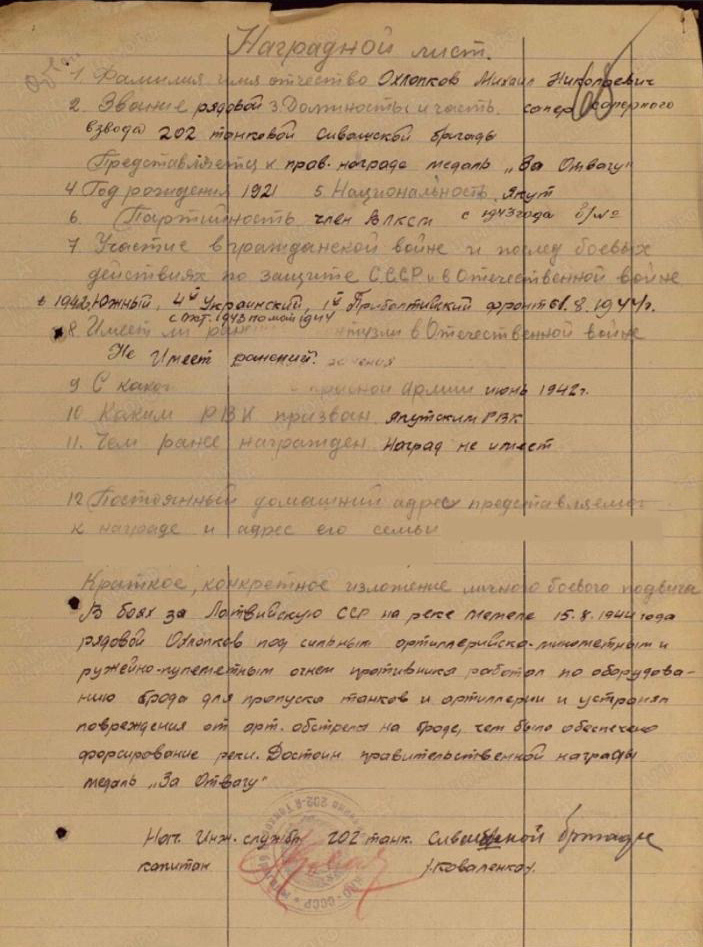 Наградной лист.
1 Фамилия имя отчество Охлопков Михаил Николаевич
2. Звание рядовой 3. Должность и часть. сапер саперного
взвода 202 танковой Сивашской бригады
Представляется к прав. награде медаль „За Отвагу"
4. Год рождения 1921 5. Национальность. Якут
6. Партийность член ВЛКСМ с 1943 года б/№
7 Участие в гражданской войне и послед боевых
действиях по защите СССР и в Отечественной войне
1942 Южный, 4й Украинский, 1й Прибалтийский фронт 8.1944г.
с окт. 1943 по май 1944
8. Имеет ли в Отечественной войне
Не имеет ранений.
9 С какого Красной Армии июнь 1942г.
10 Каким РВК призван Якутским РВК
11. Чем ранее награжден Наград не имеет
12 Постоянный домашний адрес представляемого
к награде и адрес его семьи
Краткое, конкретное изложение личного боевого подвига
В боях за Латвийскую ССР на реке Мемеле 15.8.1944 года
рядовой Охлопков под сильным артиллерийско-минометным и
ружейно-пулеметным огнем противника работал по оборудова-
нию брода для пропуска танков и артиллерии и устранял
повреждения от арт. обстрела на броде, чем было обеспечено
форсирование реки. Достоин правительственной награды
медаль „За Отвагу"
Нач. Инж. службы 202 танк. Сивашской бригады
капитан /Коваленко/.